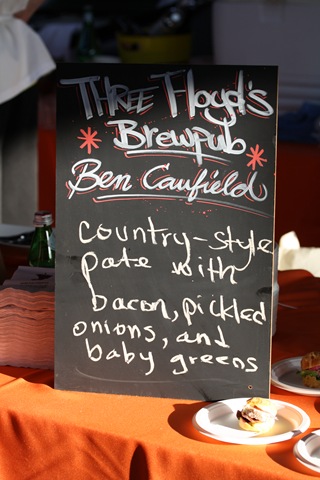 Three Floyd's
Brewpub
Ben Caufield
country-style
pate with
bacon, pickled
onions, and
baby greens